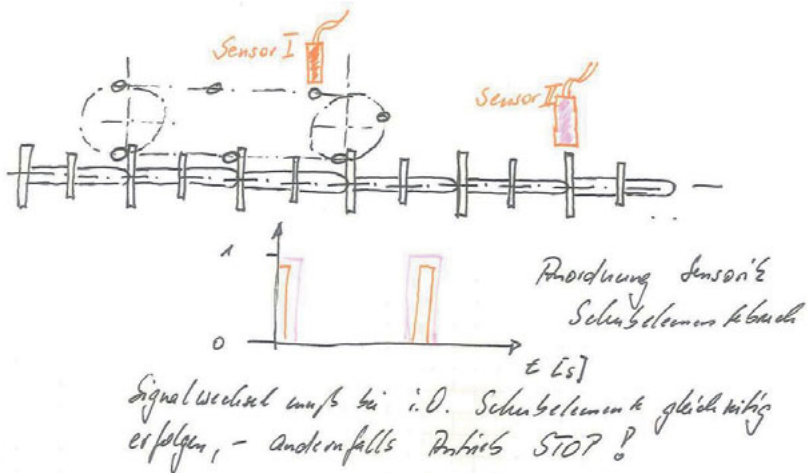 Sensor I
Sensor II
1
0
t [s]
Anordnung Sensorik
Schubelementebruch
Signalwechsel muß bei i.O. Schubelemente gleichzeitig
erfolgen, - andernfalls Antrieb STOP!